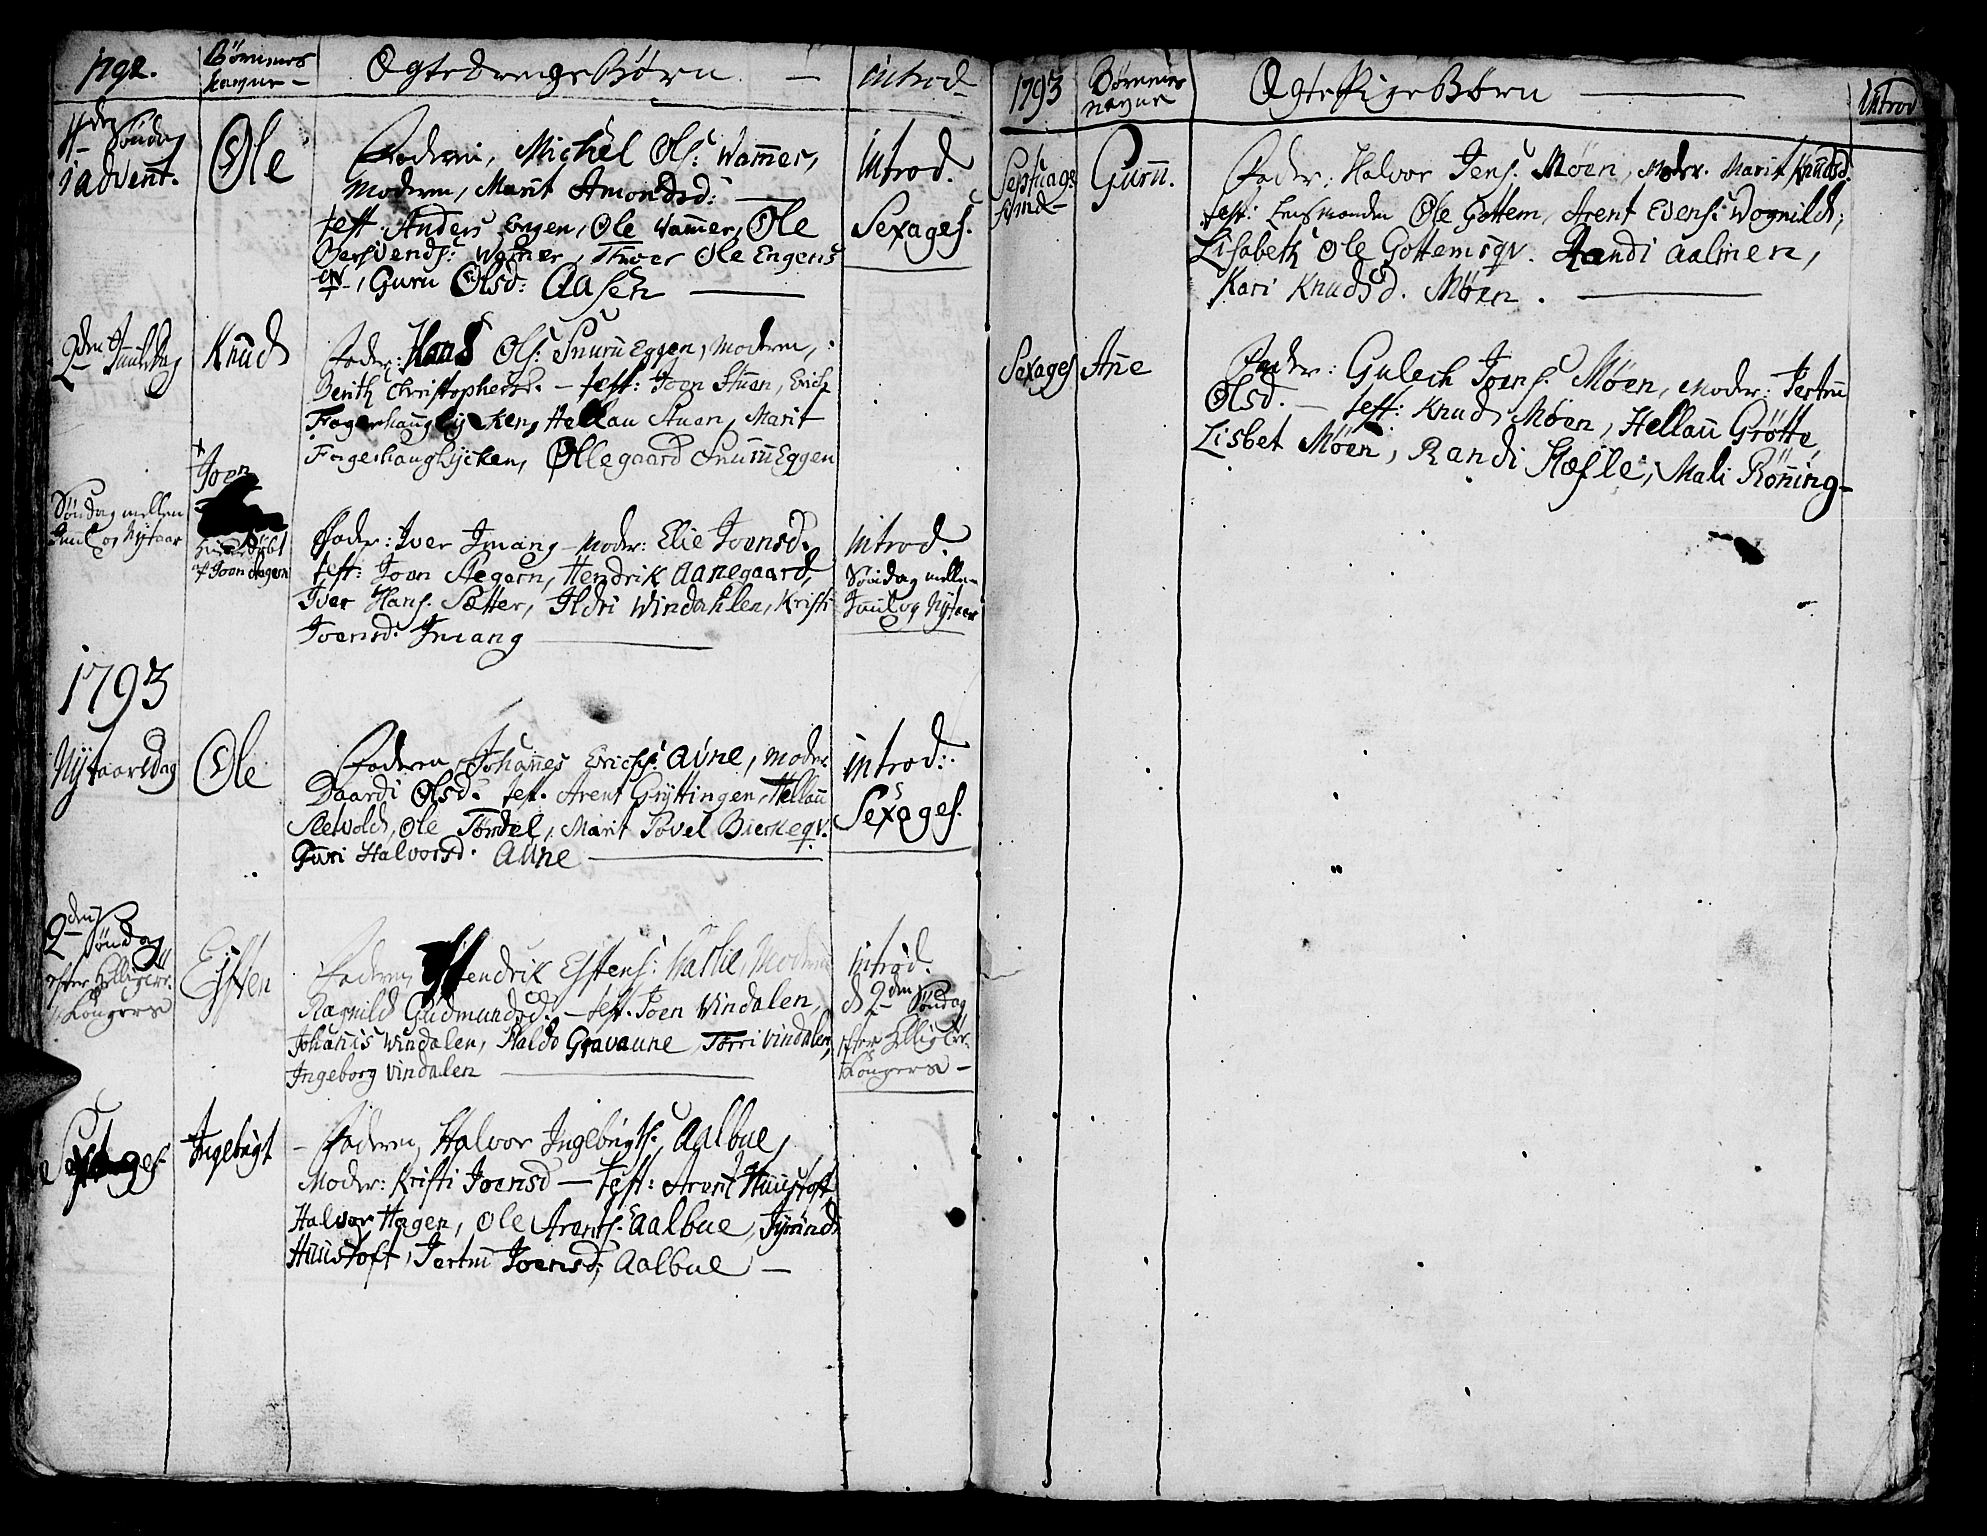 1792.
Børnenes
Nagne –
Ægte Drenge Børn –
introd –
4de Søndag
i advent.
Ole
Faderen, Michel Ols: Wammer,
Moderen, Marit Amondsd:
test. Anders Engen, Ole Wammer, Ole
Bersvends: Wammer, Ole Engens
qv, Guru Olsd: Aasen
introd.
Sexages.
2den Juuledag
Knud
Fader: Hans Ols: SnuruEggen, Moderen,
Berith Christophersd. – test: Joen Stuen, Erich
Fagerhauglycken, Hellau Stuen, Marit
Fagerhauglycken, Ollegaard SnuruEggen
Søndag mellem
Juul og Nytaar
Joen
af Joen
Fader: Iver Imang – Moder: Elie Joensd.
test: Joen Hendrik Aanegaard,
Iver Hans. Sætter, Ildri Windahlen, Kristi
Joensd. Imang
introd.
Søndag mellem
Juul og Nytaar
1793
Nytaarsdag
Ole
Faderen, Johannes Erichs: Aune, Moder
Baardi Olsd. test. Arent Gryttingen, Hellau
Ole Tørdel, Marit Povel Bierkeqv.
Guri Halvorsd. Aune
introd:
Sexages.
2den Søndag
efter Hellig 3
Kongers
Eysten
Faderen, Hendrik Estens: Moderen
Ragnild Gudmundsd. – test. Joen Vindalen,
Johannis Windalen, Haldo Gravaune, Tørri Vindalen,
Ingeborg Vindalen
introd.
d 2den Søndag
efter Hellig 3
Kongers –
Ingebrigt
– Faderen, Halvor Ingebrigts. Aalbue,
Moder: Kristi Joensd – test: Arent Huustoft
Halvor Hagen, Ole Arents. Aalbue,
Huustoft, Jertru Joensd, Aalbue –
1793
Børnenes
Nagne
Ægte Pige Børn
introd
Septuages
Guru.
Fader: Halvor Jens. Møen, Moder. Marit Knudsd.
test: Lensmanden Ole Gottem, Arent Evens: Wognild;
Lisabeth Ole Gottems qv. Randi Aalmen,
Kari Knudsd. Møen.
Sexages
Ane
Fader: Gulech Joens. Møen, Moder: Jertru
Olsd. – test: Knud Møen, Hellau Grøtte,
Lisbet Møen, Randi Hæfle, Mali Rønning –